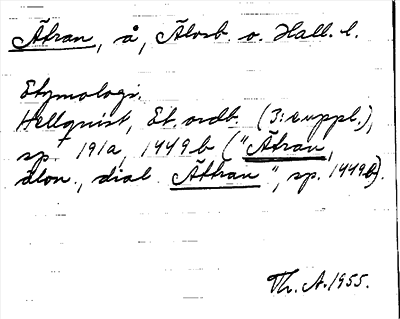 Ätran, å, Älvsb. o. Hall. l.
Etymologi.
Hellquist, Et. ordb. (3:e uppl.),
sp. 191a, 1449b ("Ätran,
älvn., dial. Äthran", sp. 1449b).
Th. A. 1955.